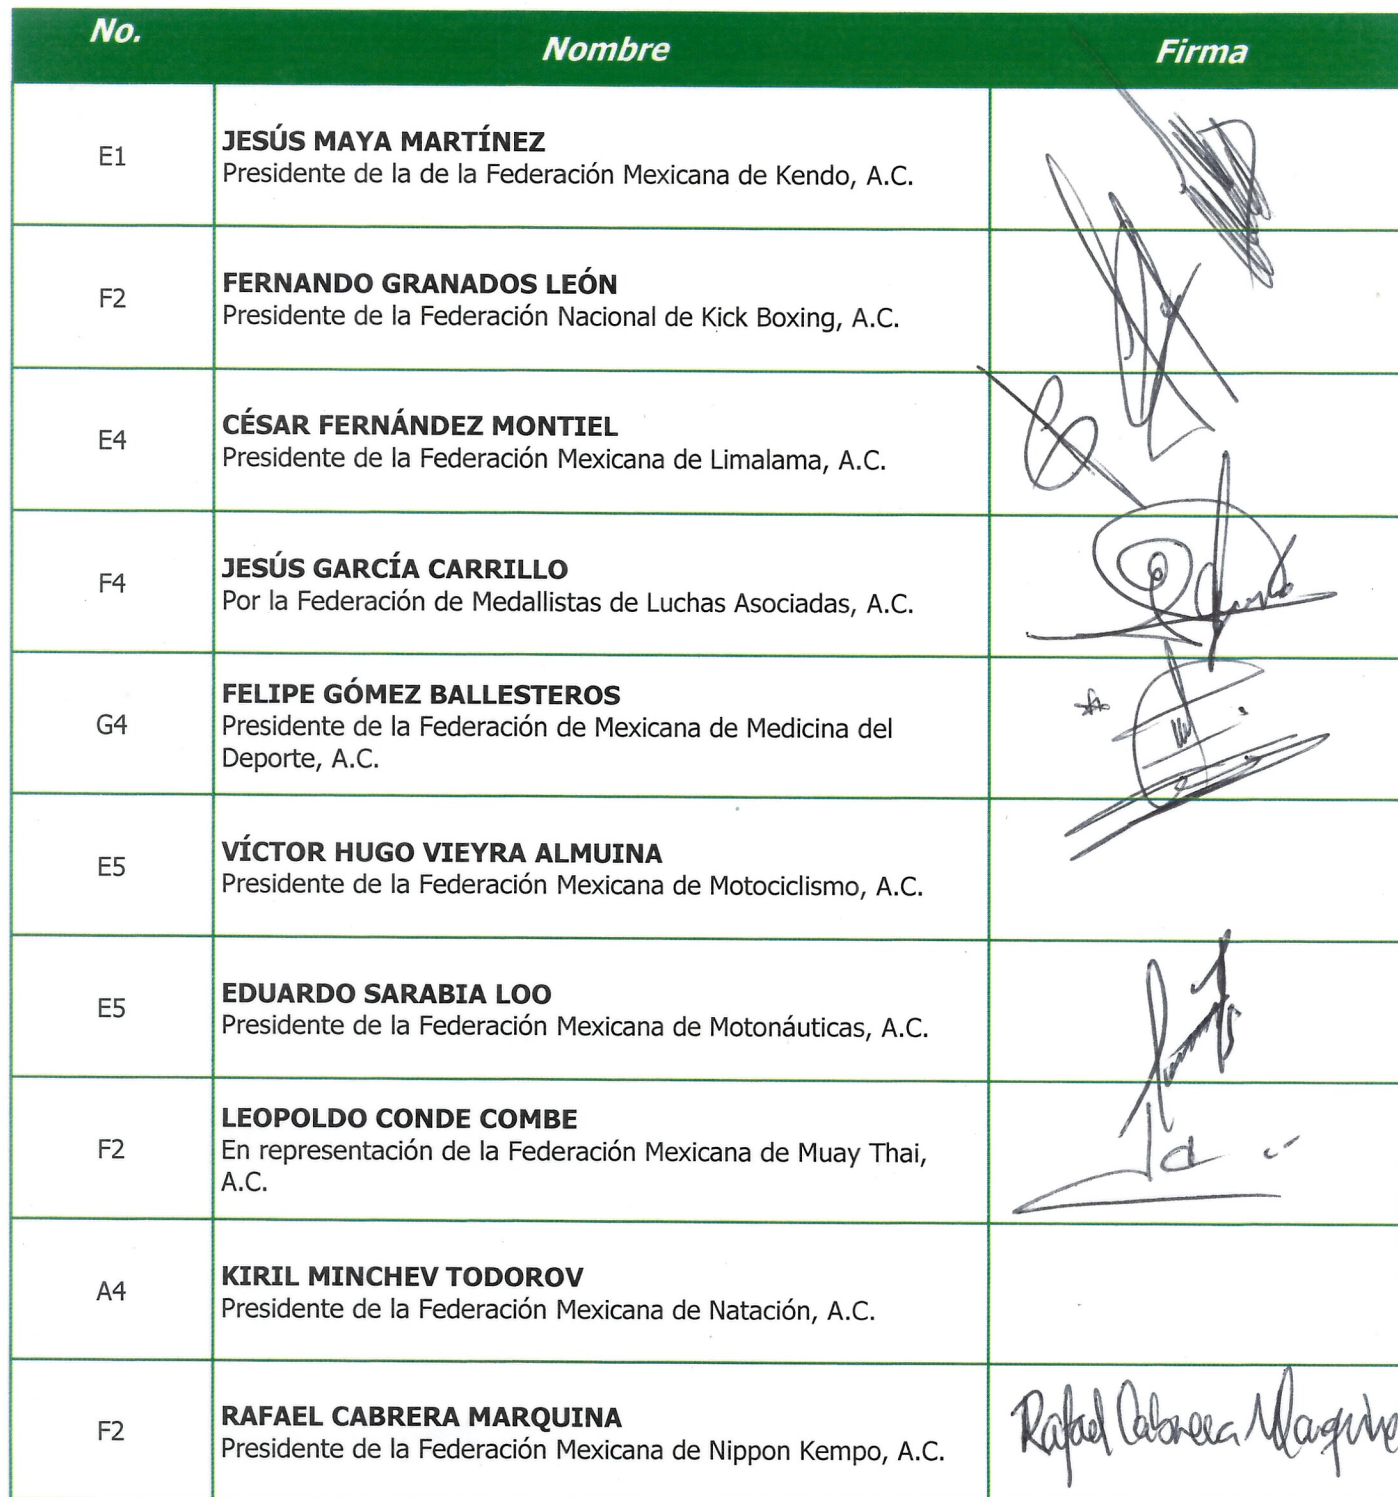 No. Nombre Firma
E1
JESÚS MAYA MARTÍNEZ
Presidente de la de la Federación Mexicana de Kendo, A.C.
F2
FERNANDO GRANADOS LEÓN
Presidente de la Federación Nacional de Kick Boxing, A.C.
E4
CÉSAR FERNÁNDEZ MONTIEL
Presidente de la Federación Mexicana de Limalama, A.C.
F4
JESÚS GARCÍA CARRILLO
Por la Federación de Medallistas de Luchas Asociadas, A.C.
G4
FELIPE GÓMEZ BALLESTEROS
Presidente de la Federación de Mexicana de Medicina del
Deporte, A.C.
E5
VÍCTOR HUGO VIEYRA ALMUINA
Presidente de la Federación Mexicana de Motociclismo, A.C.
E5
EDUARDO SARABIA LOO
Presidente de la Federación Mexicana de Motonáuticas, A.C.
F2
LEOPOLDO CONDE COMBE
En representación de la Federación Mexicana de Muay Thai,
A.C.
A4
KIRIL MINCHEV TODOROV
Presidente de la Federación Mexicana de Natación, A.C.
F2
RAFAEL CABRERA MARQUINA
Presidente de la Federación Mexicana de Nippon Kempo, A.C.
Rafael Cabrera Marquina